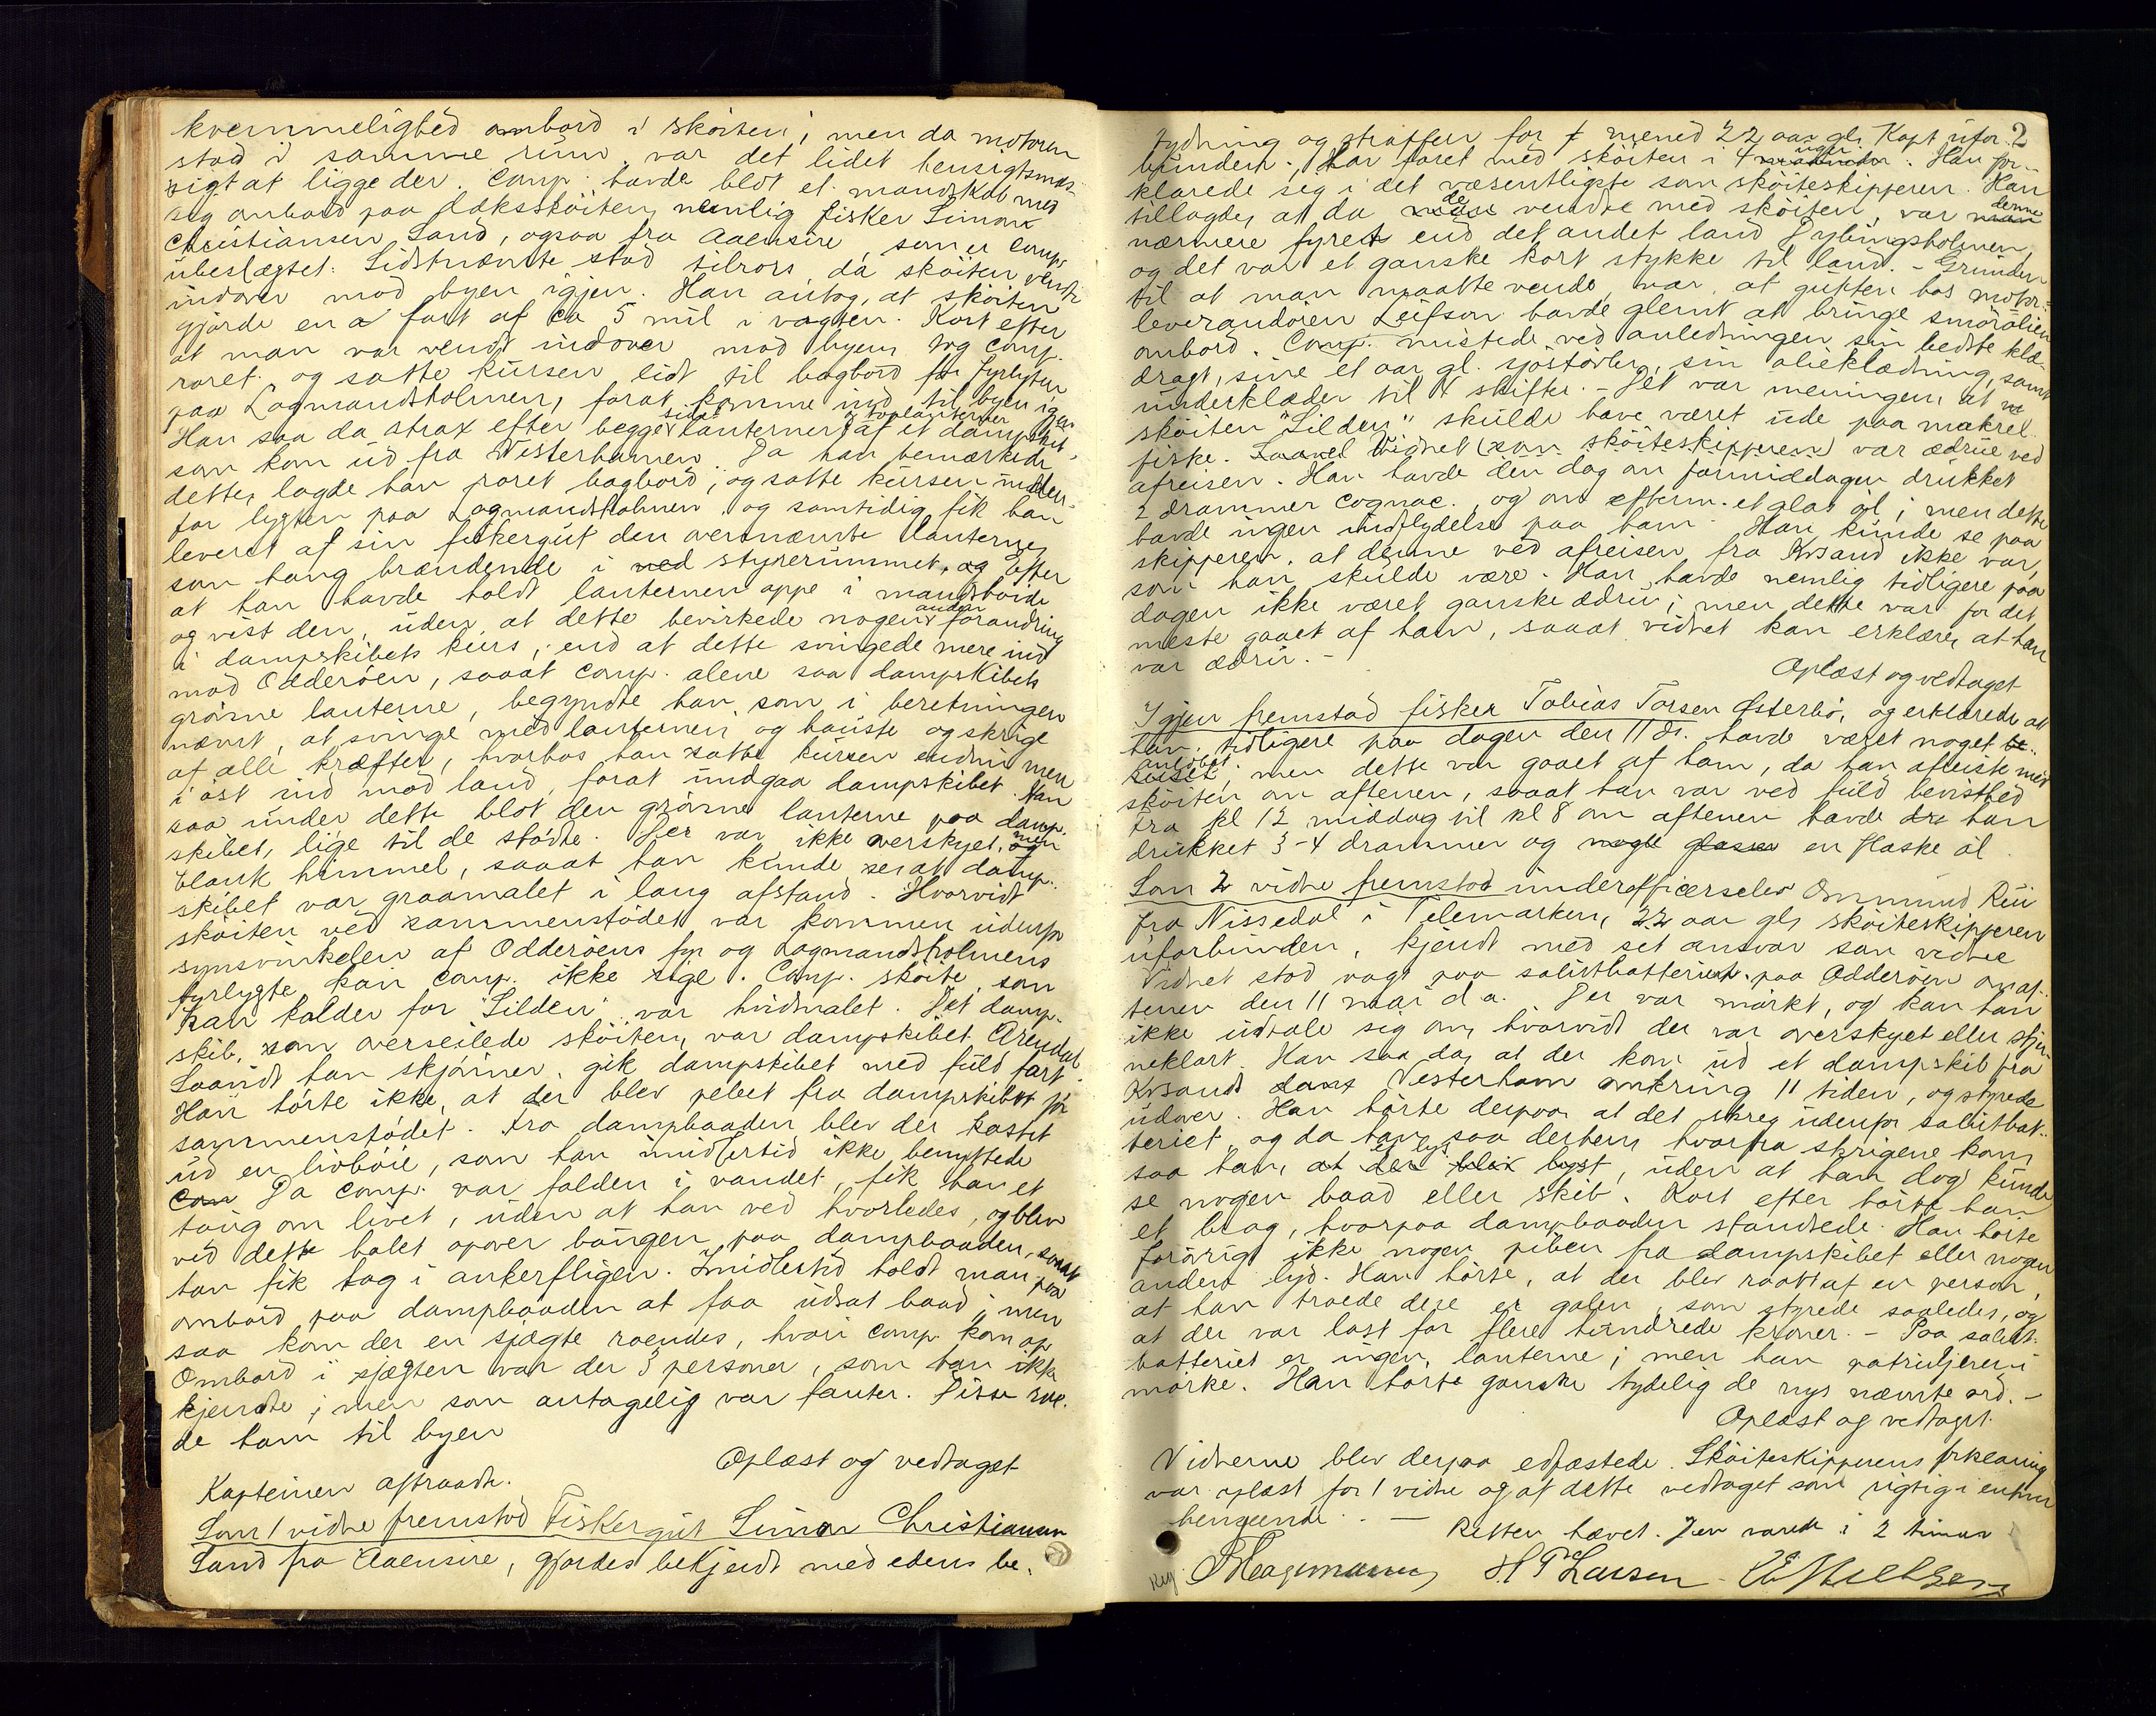 kvemmelighed ombord i skøiten; men da motoren
stod i samme rum, var det lidet hensigtsmæs-
sigt at ligge der. Comp. havde blot et mandskab med
sig ombord paa dæksskøiten, nemlig fisker Simon
Christiansen Sand, ogsaa fra Aaensire, som er comp.
ubeslægtet. Sidstnævnte stod tilrors, da skøiten vendte
indover mod byen igjen. Han antog, at skøiten
gjorde en fart af ca 5 mil i vagten. Kort efter
at man var vendt indover mod byen, tog comp.
roret og satte kursen lidt til bagbord for fyrlygten
paa Lagmandsholmen, forat komme ind til byen igjen
Han saa da strax efter begge side lanterner og toplanterner af et dampskib,
som kom ud fra Vesterhavnen. Da han bemærkede
dette, lagde han roret bagbord, og satte kursen inden-
for lygten paa Lagmandsholmen og samtidig fik han
leveret af sin fiskergut den overnævnte lanterne,
som hang brændende i ved styrerummet, og Efter
at han havde holdt lanternen oppe i mandshøide
og vist den, uden at dette bevirkede nogen anden forandring
i dampskibets kurs, end at dette svingede mere ind
mod Odderøen, saaat comp. alene saa dampskibets
grønne lanterne, begyndte han, som i beretningen
nævnt, at svinge med lanternen og hauste og skrige
af alle kræfter, hvorhos han satte kursen endnu mere
i øst ind mod land, forat undgaa dampskibet. Han
saa under dette blot den grønne lanterne paa damp-
skibet, lige til de stødte. Der var ikke overskyet, og men
blank himmel, saaat han kunde se, at damp-
skibet var graamalet i lang afstand. Hvorvidt
skøiten ved sammenstødet var kommen udenfor
synsvinkelen af Odderøens fyr og Lagmandsholmens
fyrlygte kan comp. ikke sige. Comp. skøite, som
han kalder for "Silden" var hvidmalet. Det damp-
skib, som overseilede skøiten, var dampskibet Arendal
Saavidt han skjønner, gik dampskibet med fuld fart.
Han hørte ikke, at der blev pebet fra dampskibet før
sammenstødet. Fra dampbaaden blev der kastet
ud en livbøie, som han imidlertid ikke benyttede
Com Da comp. var falden i vandet, fik han et
taug om livet, uden at han ved hvorledes, og blev
ved dette halet opover baugen paa dampbaaden, saaat
han fik tag i ankerfligen. Imidlertid holdt man paa
ombord paa dampbaaden at faa udsat baad; men
saa kom der en sjægte roendes, hvori comp. kom op
Ombord i sjægten var der 3 personer, som han ikke
kjendte; men som antagelig var fanter. Disse roe-
de ham til byen
Oplæst og vedtaget
Kapteinen aftraadte.
Som 1 vidne fremstod Fiskergut Simon Christiansen
Sand fra Aaensire, gjordes bekjendt med edens be-
2
tydning og straffen for mened 22 aar gl. Kapt. ufor-
bunden. Har faret med skøiten i 4 maaneder uger. Han for-
klarede seg i det væsentligste som skøiteskipperen. Han
tillagde, at da de vendte med skøiten, var man denne
nærmere fyret end det andet land Dybingsholmen,
og det var et ganske kort stykke til land. - Grunden
til at man maatte vende, var, at gutten hos motor-
leverandøren Leifson havde glemt at bringe smøroljen
ombord. Comp. mistede ved anledningen sin bedste klæ-
dragt, sine et aar gl. sjøstøvler, sin olieklædning, samt
underklæder til 4 skifte. - Det var meningen, at
skøiten "Silden" skulde have været ude paa makrel-
fiske. Saavel Vidnet (som skøiteskipperen) var ædrue ved
afreisen. Han havde den dag om formiddagen drukket
2 drammer cognac, og om efterm. et glas øl; men dette
havde ingen indflydelse paa ham. Han kunde se paa
skipperen, at denne ved afreisen fra Krsand ikke var,
som han skulde være. Han havde nemlig tidligere paa
dagen ikke været ganske ædru; men dette var for det
meste gaaet af ham, saaat vidnet kan erklære, at han
var ædru. -
Oplæst og vedtaget
Igjen fremstod fisker Tobias Torsen Østerbø, og erklærede at
han tidligere paa dagen den 11 ds. havde været noget be-
ruset, men dette var gaaet af ham, da han afreiste med
skøiten om aftenen, saaat han var ved fuld bevisthed
Fra kl 12 middag til kl 8 om aftenen havde han
drukket 3-4 drammer og nogle glasser en flaske øl.
Som 2 vidne fremstod underofficerselev Ommund Rui
fra Nissedal i Telemarken, 22 aar gl, skøiteskipperen
uforbunden, kjendt med set ansvar som vidne
Vidnet stod vagt paa salutbatteriet paa Odderøen om af-
tenen den 11 mai d a. Der var mørkt, og kan han
ikke udtale sig om, hvorvidt der var overskyet eller stjer-
neklart. Han saa da, at der kom ud et dampskib fra
Krsands Vesterhavn omkring 11 tiden, og styrede
udover. Han hørte derpaa at det skreg udenfor salutbat-
teriet, og da han saa derhen, hvorfra skrigene kom,
saa han, at der blev lyst et lys, uden at han dog kunde
se nogen baad eller skib. Kort efter hørte han
et brag, hvorpaa dampbaaden standsede. Han hørte
forøvrigt ikke nogen piben fra dampskibet eller nogen
anden lyd. Han hørte, at der blev raabt af en person,
at han troede dere er galen, som styrede saaledes, og
at der var last for flere hundrede kroner. - Paa salut-
batteriet er ingen lanterne; men han patruljerer i
mørke. Han hørte ganske tydelig de nys nævnte ord. -
Oplæst og vedtaget.
Vidnerne blev derpaa edfæstede. Skøiteskipperens forklaring
var oplæst for 1 vidne og af dette vedtaget som rigtig i enhver
henseende. -
Retten hævet. Den varede i 2 timer
H. P. Larsen